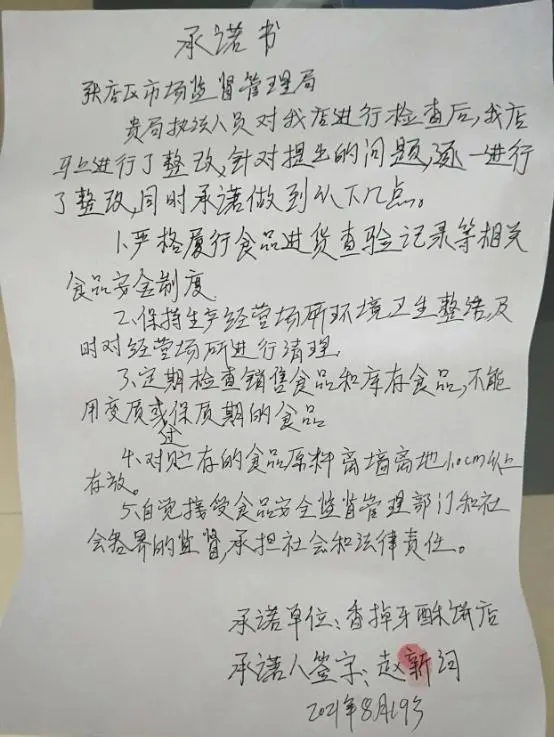 承诺书
张店区市场监督管理局
贵局执法人员对我店进行检查后,我店
马上进行了整改,针对提出的问题,逐一进行
了整改,同时承诺做到以下几点。
1.严格履行食品进货查验记录等相关
食品安全制度
2.保持生产经营场所环境卫生整洁,及
时对经营场所进行清理.
3.定期检查销售食品和库存食品,不能
用变质或过保质期的食品
4.对贮存的食品原料离墙离地10cm以上
存放。
5.自觉接受食品安全监督管理部门和社
会各界的监督,承担社会和法律责任。
承诺单位:香掉牙酥饼店
承诺人签字:赵新
2021年8月19号